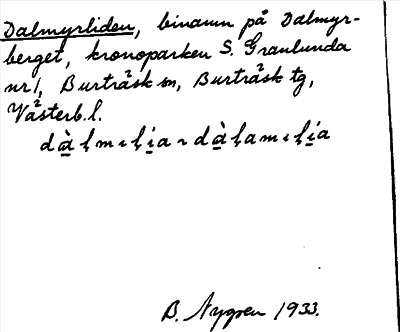 Dalmyrliden, binamn på Dalmyr-
berget, kronoparken S. Granlunda
nr 1, Burträsk sn, Burträsk tg,
Västerb. l.
B. Nygren 1933.